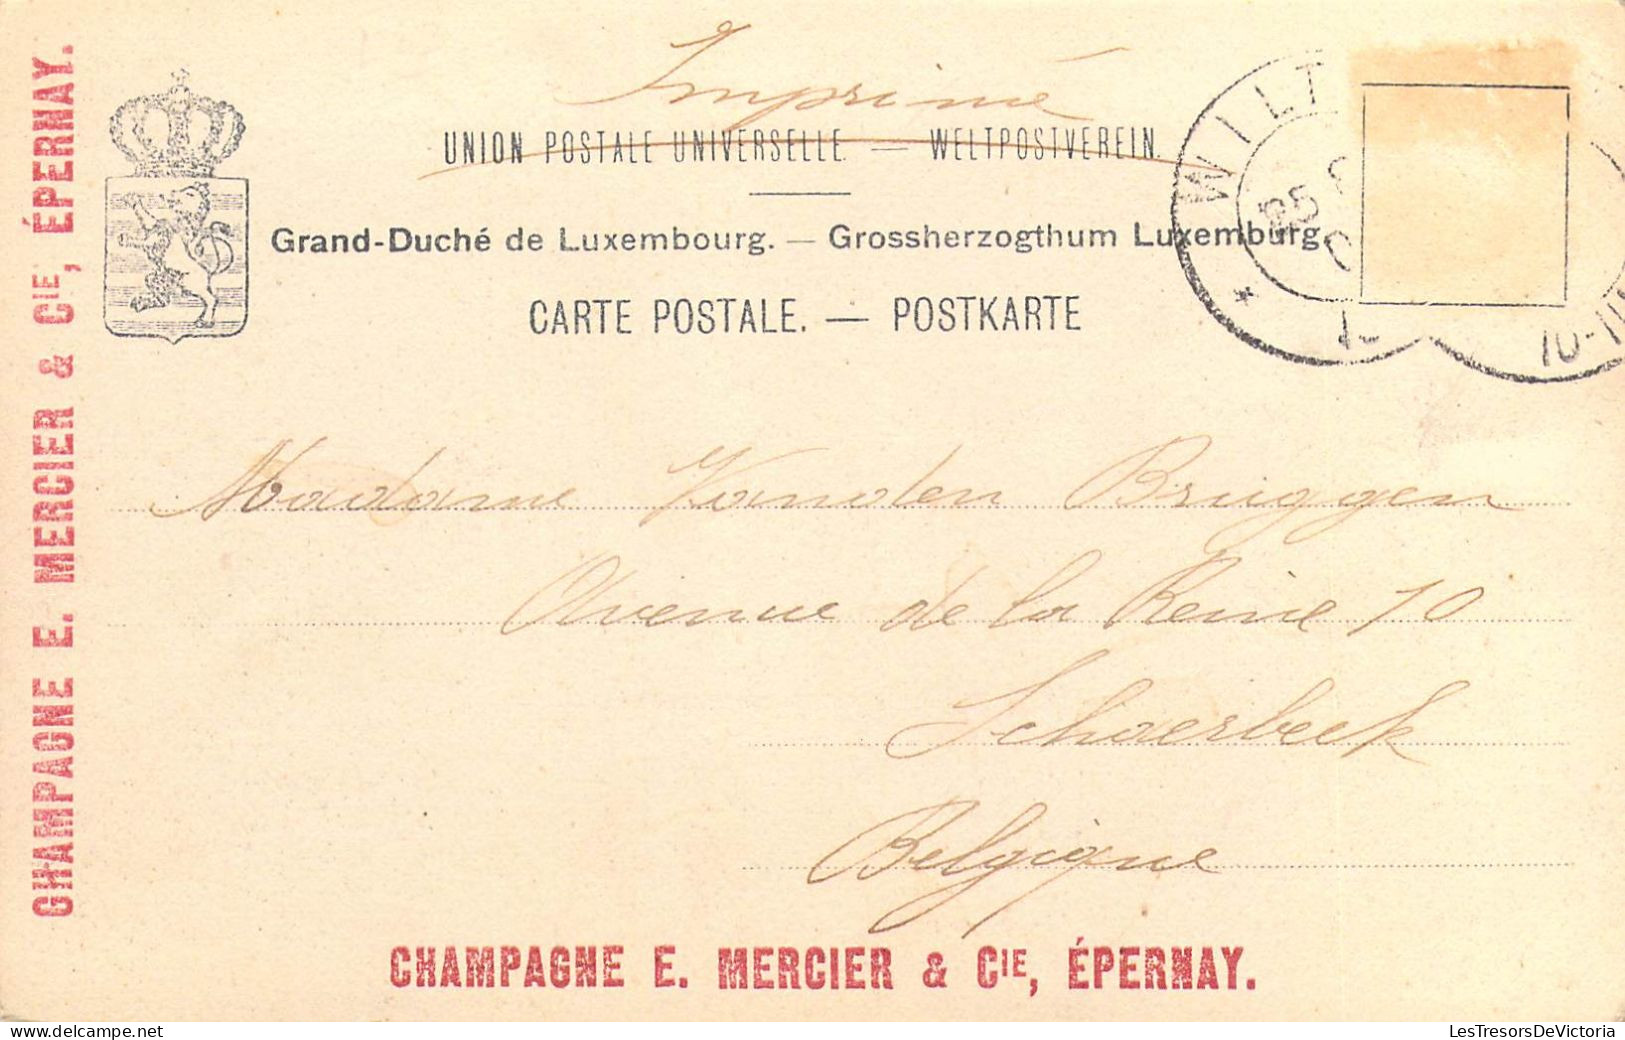 Imprimé
UNION POSTALE UNIVERSELLE. — WELTPOSTVEREIN.
Grand-Duché de Luxembourg. — Grossherzogthum Luxemburg.
CARTE POSTALE. — POSTKARTE
WILT
25
10-11
Madame Vanden Bruggen
Avenue de la Reine 10
Schaerbeek
Belgique
CHAMPAGNE E. MERCIER & CIE, ÉPERNAY.
CHAMPAGNE E. MERCIER & CIE, ÉPERNAY.
www.delcampe.net
LesTresorsDeVictoria